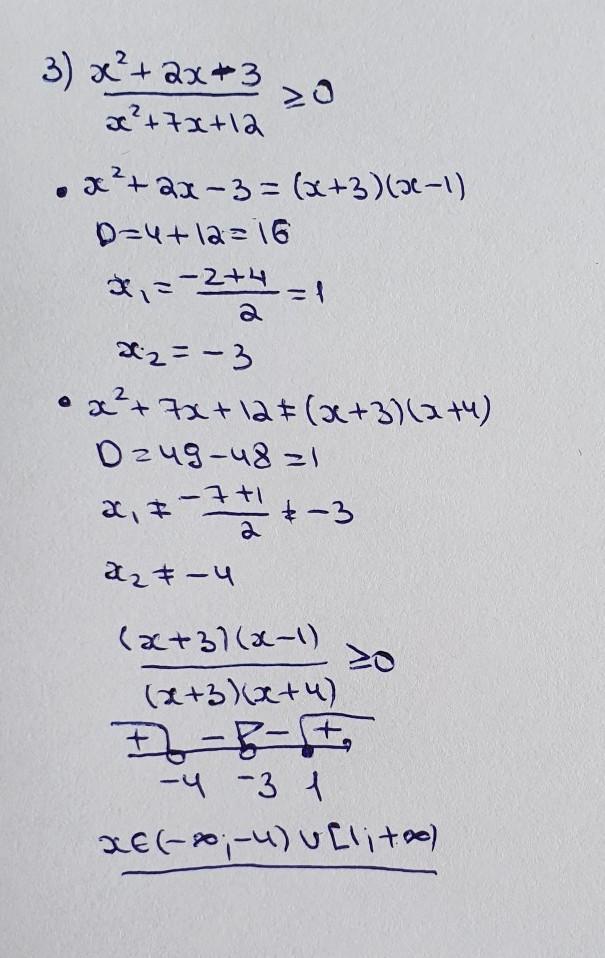 3) x² + 2x - 3 / x² + 7x + 12 ≥ 0
• x² + 2x - 3 = (x+3)(x-1)
D = 4 + 12 = 16
x₁ = -2+4 / 2 = 1
x₂ = -3
• x² + 7x + 12 ≠ (x+3)(x+4)
D = 49 - 48 = 1
x₁ ≠ -7+1 / 2 ≠ -3
x₂ ≠ -4
(x+3)(x-1) / (x+3)(x+4) ≥ 0
+ - - +
-4 -3 1
x ∈ (-∞; -4) ∪ [1; +∞)